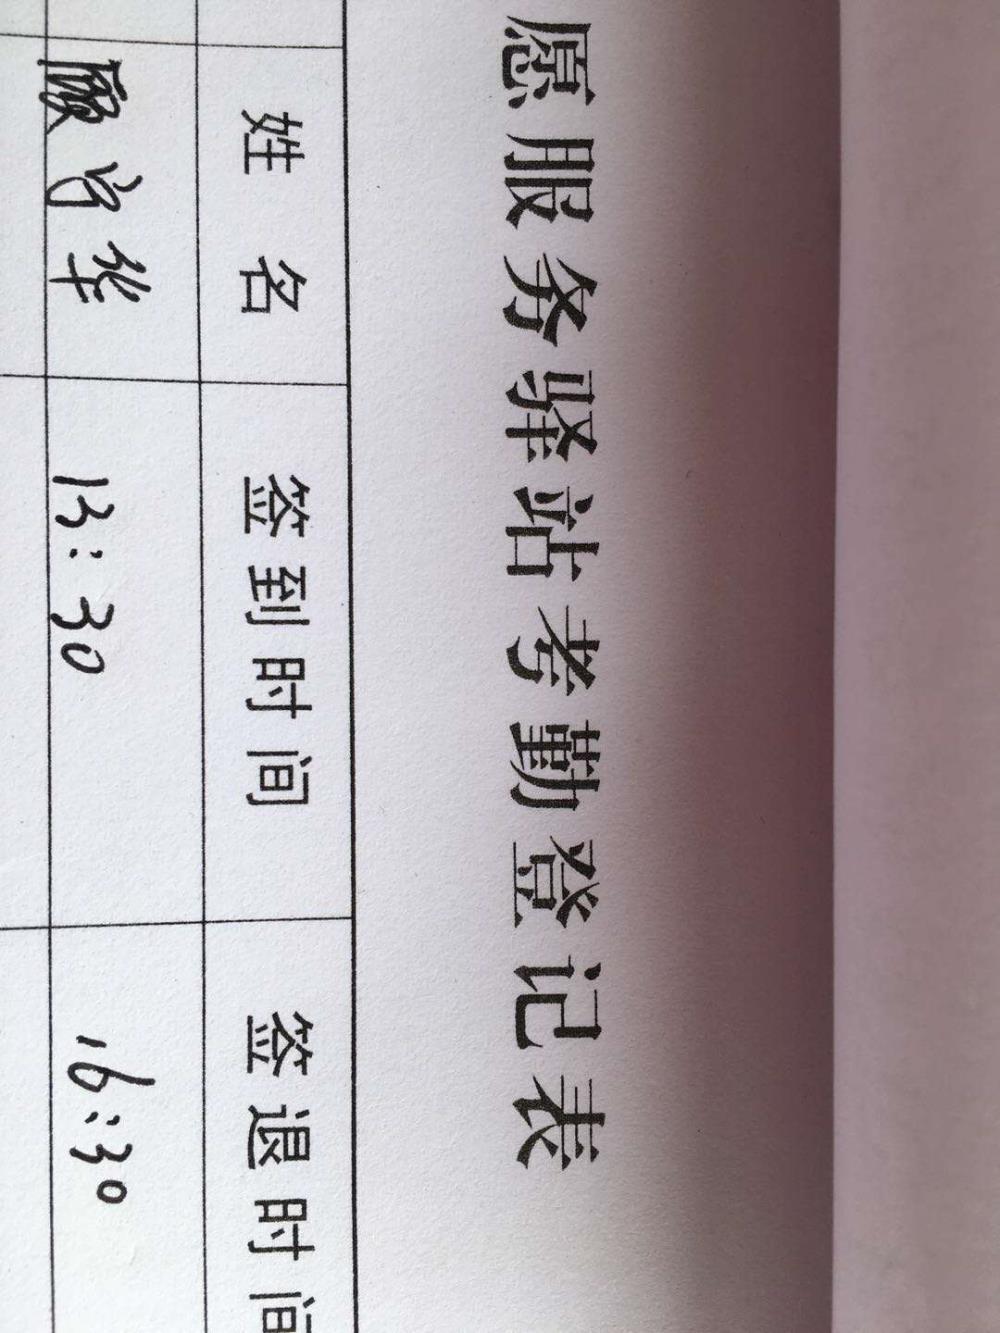 愿服务驿站考勤登记表
姓名 签到时间 签退时间
顾守华 13:30 16:30